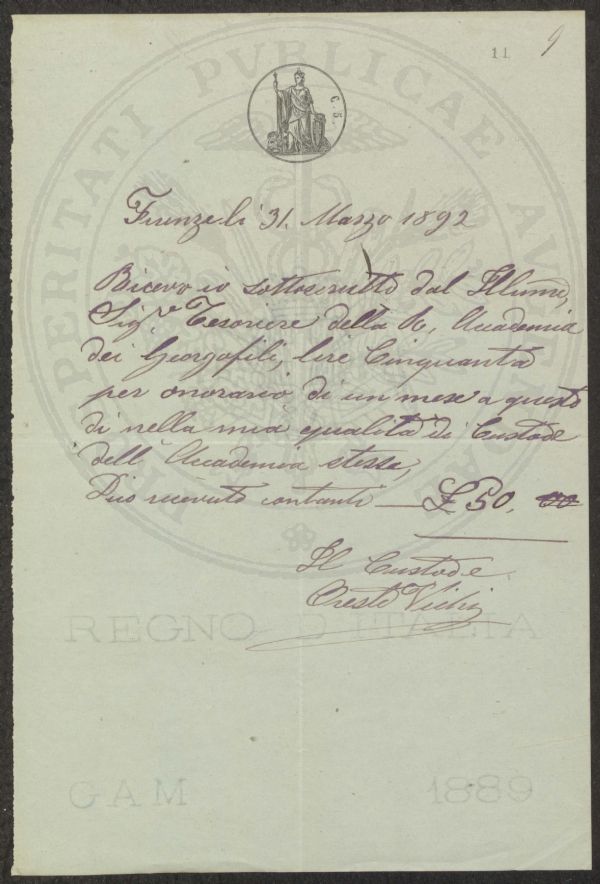 11
9
C. 5.
PROSPERITATI PVBLICAE AVGENDAE
Firenze li 31. Marzo 1892
Ricevo io sottoscritto dal Illmo,
Sigr. Tesoriere della R, Accademia
dei Georgofili, lire Cinquanta
per onorario di un mese a questo
di nella mia qualità di Custode
dell'Accademia stessa,
Dico ricevuto contanti — £ 50, 00
Il Custode
Oreste
REGNO D'ITALIA
GAM 1889